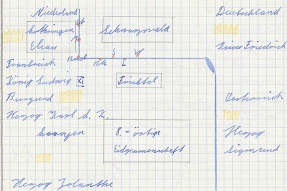 Niederland
Lothringen
Elsass
Schwarzwald
Deutschland
Kaiser Friedrich
Frankreich
König Ludwig XI
Fricktal
Burgund
Herzog Karl d. K.
Oesterreich
8-örtige
Eidgenossenschaft
Herzog
Sigmund
Herzog Jolanthe